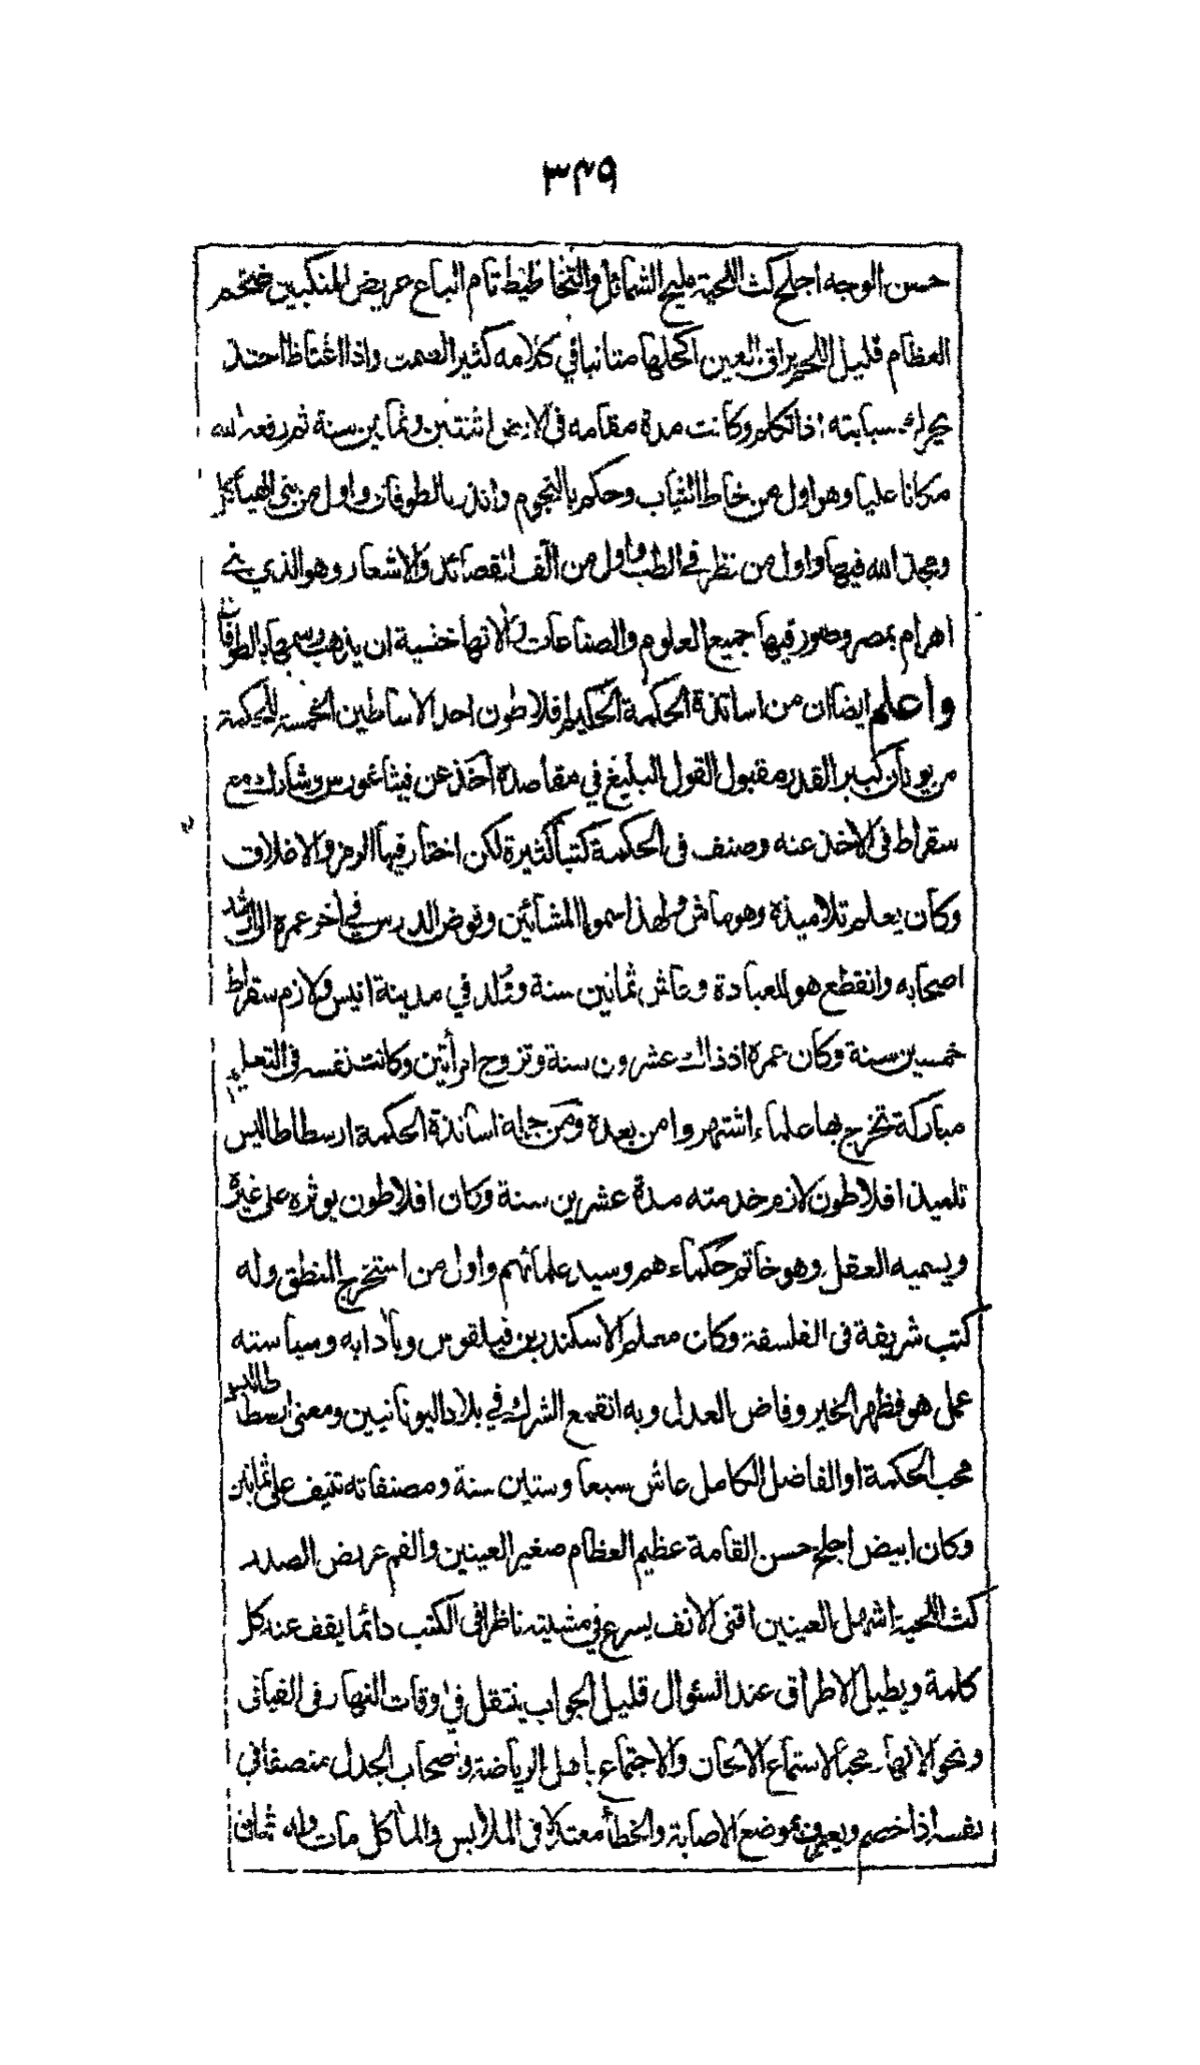 ٣٤٩
حسن الوجه اجلح كث اللحية مليح الشمائل والتخاطيط تام الباع عريض المنكبين ضخم
العظام قليل اللحم براق العين اكحلها متانيا في كلامه كثير الصمت واذا اغتاظ احتد
يحرك سبابته اذا تكلم وكانت مدة مقامه في الارض اثنتين وثمانين سنة ثم رفعه الله
مكانا عليا وهو اول من خاط الثياب وحكم بالنجوم وانذر بالطوفان واول من بنى الهياكل
ومجد الله فيها واول من نظر في الطب واول من الف القصائد والاشعار وهو الذي بنى
اهرام بمصر وصور فيها جميع العلوم والصناعات وآلاتها خشية ان يذهب رسمها بالطوفان
واعلم ايضا ان من اساتذة الحكمة الحكيم افلاطون احد الاساطين الخمسة للحكمة
من يونان كبير القدر مقبول القول البليغ في مقاصده اخذ عن فيثاغورس وشارك مع
سقراط في الاخذ عنه وصنف في الحكمة كتبا كثيرة لكن اختار فيها الرمز والاغلاق
وكان يعلم تلاميذه وهو ماش ولهذا سموا المشائين وفوض الدرس في آخر عمره الى ارشد
اصحابه وانقطع هو للعبادة وعاش ثمانين سنة وولد في مدينة اثينس ولازم سقراط
خمسين سنة وكان عمره اذ ذاك عشرون سنة وتزوج امرأتين وكانت نفسه في التعليم
مباركة تخرج بها علماء اشتهروا من بعده ومن جملة اساتذة الحكمة ارسطاطاليس
تلميذ افلاطون لازم خدمته مدة عشرين سنة وكان افلاطون يوثره على غيره
ويسميه العقل وهو خاتم حكماءهم وسيد علمائهم واول من استخرج المنطق وله
كتب شريفة في الفلسفة وكان معلم الاسكندر بن فيلقوس وبآدابه وسياسته
عمل هو فظهر الخير وفاض العدل وبه انقمع الشرك في بلاد اليونانيين ومعنى ارسطاطاليس
محب الحكمة او الفاضل الكامل عاش سبعا وستين سنة ومصنفاته تنيف على ثمانين
وكان ابيض اجلح حسن القامة عظيم العظام صغير العينين والفم عريض الصدر
كث اللحية اشهل العينين اقنى الانف يسرع في مشيته ناظرا في الكتب دائما يقف عند كل
كلمة ويطيل الاطراق عند السئوال قليل الجواب ينتقل في اوقات النهار في الفيافي
ونحو الانهار محبا لاستماع الالحان والاجتماع باهل الرياضة واصحاب الجدل منصفا في
نفسه اذا خصم ويعرف بموضع الاصابة والخطأ معتدلا في الملابس والمأكل مات وله ثمان